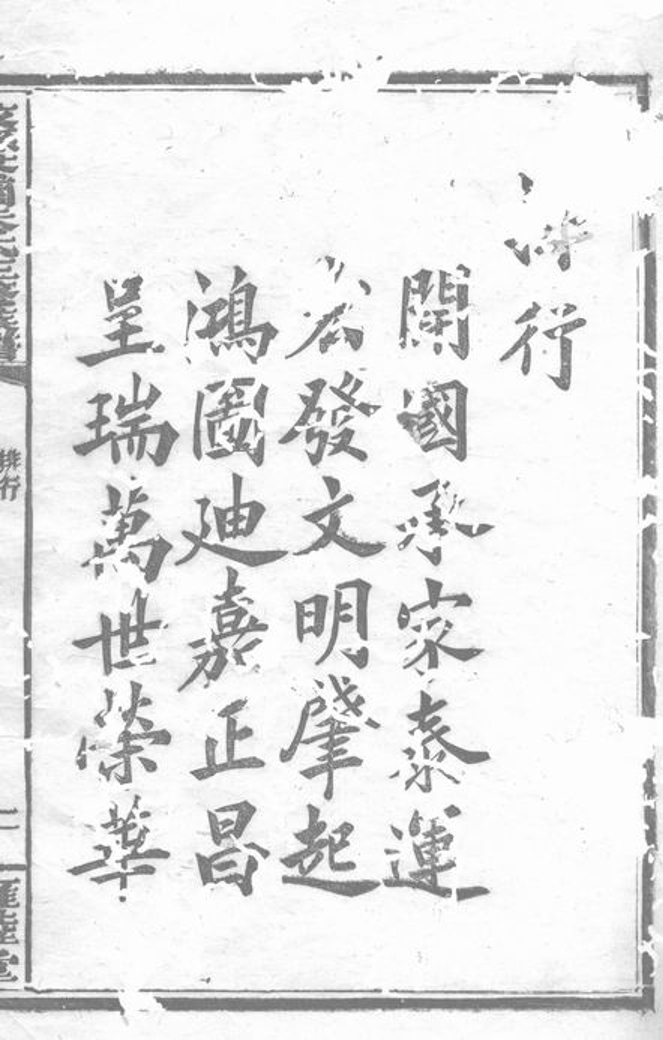 排行
開國承家泰運
宏發文明肇起
鴻圖迪嘉正昌
呈瑞萬世榮華
族譜
排行
堂